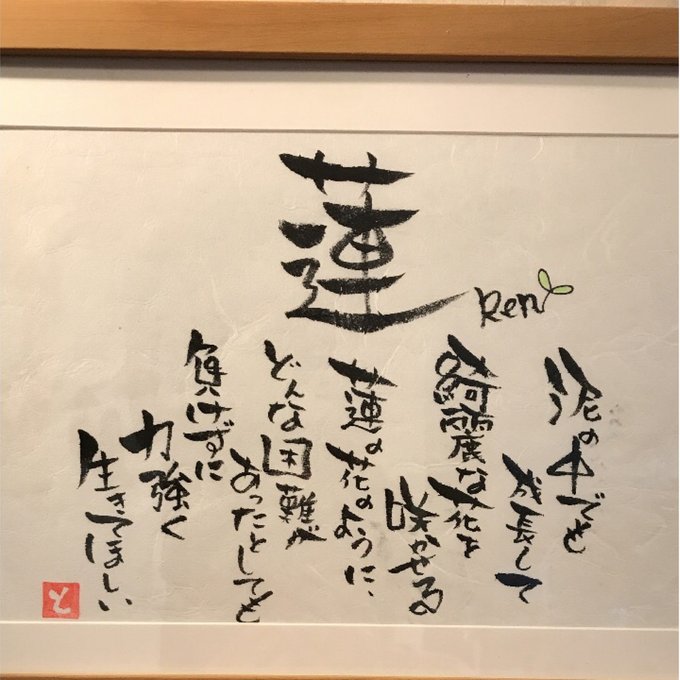 蓮
Ren
泥の中でも
成長して
綺麗な花を
咲かせる
蓮の花のように、
どんな困難が
あったとしても
負けずに
力強く
生きてほしい
と